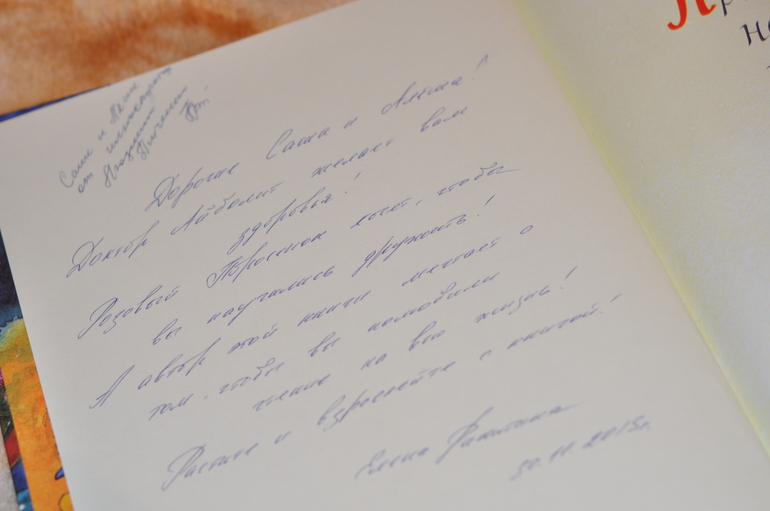 Саше и Лёше
от иллюстратора
Дорогие Саша и Алёша!
Доктор Айболит желает вам
здоровья!
Розовый Поросёнок хочет, чтобы
вы научились дружить!
А автор этой книги мечтает о
том, чтобы вы полюбили
чтение на всю жизнь!
Растите и взрослейте с книгой!
Елена
30.11.2015г.